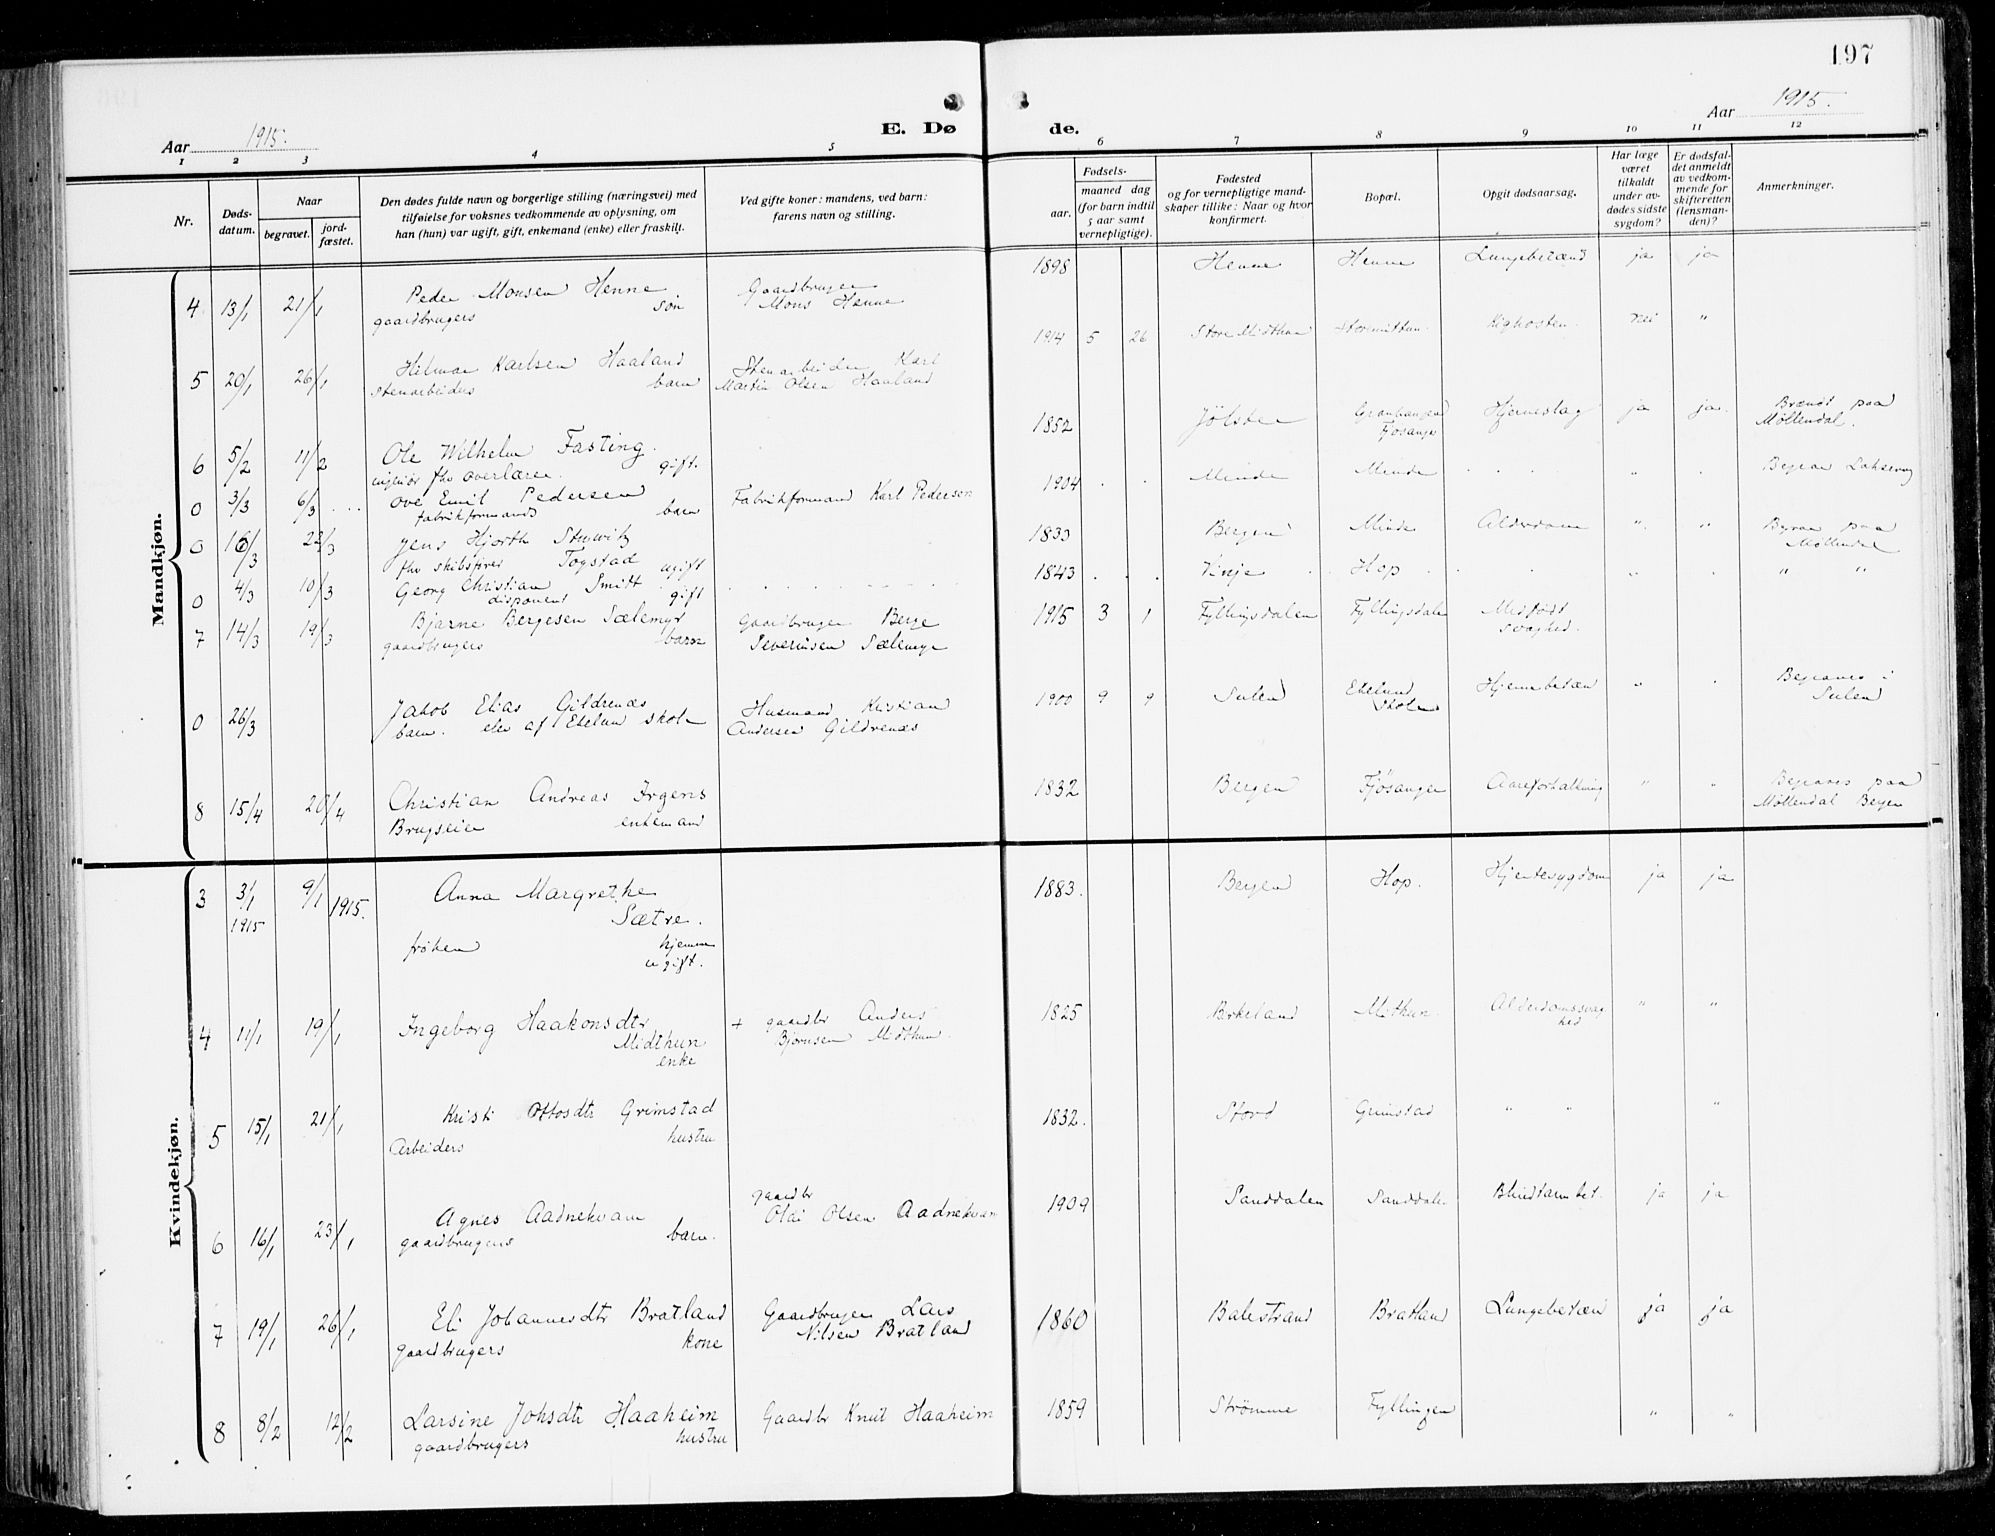 197
Aar 1915.
E. Dø
de.
Aar 1915.
1 2 3 4 5 6 7 8 9 10 11 12
Nr.
Døds-
datum.
Naar
begravet.
jord-
fæstet.
Den dødes fulde navn og borgerlige stilling (næringsvei) med
tilføielse for voksnes vedkommende av oplysning, om
han (hun) var ugift, gift, enkemand (enke) eller fraskilt.
Ved gifte koner: mandens, ved barn:
farens navn og stilling.
Fødsels-
aar.
maaned dag
(for barn indtil
5 aar samt
vernepligtige).
Fødested
og for vernepligtige mand-
skaper tillike: Naar og hvor
konfirmert.
Bopæl.
Opgit dødsaarsag.
Har læge
været
tilkaldt
under av-
dødes sidste
sygdom?
Er dødsfal-
det anmeldt
av vedkom-
mende for
skifteretten
(lensman-
den)?
Anmerkninger.
Mandkjøn.
4 13/1 21/1 Peder Monsen Henne Gaardbruger 1898 Henne Henne Lungebetænd ja ja
gaardbrugers søn Mons Henne
5 20/1 26/1 Hilmar Karlsen Haaland Stenarbeider Karl 1914 5 26 Store Midthun Storemittun Kighosten. nei "
Stenarbeiders barn Martin Olsen Haaland
6 5/2 11/2 Ole Wilhelm Fasting. 1852 Jølster Hjerneslag ja ja. Brændt paa
ingeniør fhv overlærer. gift. Fjøsanger Møllendal.
0 3/3 6/3 Ove Emil Pedersen Fabrikformand Karl Pedersen 1904 Minde Minde "
fabrikformands barn
0 16/3 22/3 Jens Hjorth 1833 Bergen Minde Alderdom " " paa
fhv skibsfører Togstad ugift Møllendal
0 4/3 10/3 Georg Christian Smitt 1843 Vinje Hop " " "
disponent gift
7 14/3 19/3 Bjarne Bergesen Sælemyr Gaardbruger Berge 1915 3 1 Fyllingsdalen Fyllingsdalen Medfødt
gaardbrugers barn Severinsen Sælemyr svaghed.
0 26/3 Jakob Elias Gildrenæs Husmand Kristian 1900 9 9 Sulen Ekelund Hjernebetæn " Begraves i
barn. elev af Ekelun skole Andersen Gildrenæs Skole Sulen
8 15/4 20/4 Christian Andreas Irgens 1832 Bergen Fjøsanger Aareforkalkning " " Begraves paa
Brugseier enkemand Møllendal Bergen
Kvindekjøn.
3 3/1 9/1 1915. Anna Margrethe 1883. Bergen Hop. Hjertesygdom ja ja
1915 Sætre.
frøken hjemme
ugift.
4 11/1 19/1 Ingeborg Haakonsdtr + gaardbr Anders 1825 Birkeland Mithun. Alderdomssvag " "
Midthun Bjørnsen Midthun. hed
enke
5 15/1 21/1 Kristi Ottosdtr Grimstad 1832. Stord Grimstad " " "
Arbeiders hustru
6 16/1 23/1 Agnes Aadnekvam gaardbr 1909 Sanddalen Sanddale. Blindtarmbet. ja ja
gaardbrugers barn. Olai Olsen Aadnekvam
7 19/1 26/1 Eli Johannesdtr Bratland Gaardbruger Lars 1860 Balestrand Bratland Lungebetæn ja ja
gaardbrugers kone Nilsen Bratland
8 8/2 12/2 Larsine Johsdtr Haaheim Gaardbr Knut Haaheim 1859 Strømme Fyllingen " "
gaardbrugers hustru